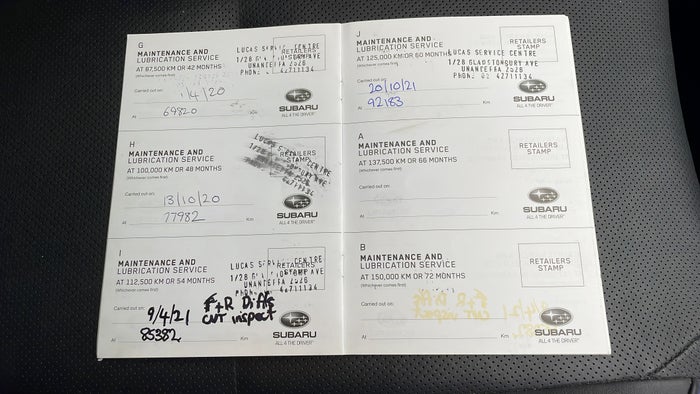 G
MAINTENANCE AND
LUBRICATION SERVICE
AT 87,500 KM OR 42 MONTHS
(Whichever comes first)
LUCAS SERVICE CENTRE
RETAILERS
1/28 GLADSTONBURY AVE
UNANDERRA 2526
PHONE: 02 42711134
Carried out on:
1/4/20
At
69820
Km
SUBARU
ALL 4 THE DRIVER
H
MAINTENANCE AND
LUBRICATION SERVICE
AT 100,000 KM OR 48 MONTHS
(Whichever comes first)
RETAILERS
STAMP
Carried out on:
13/10/20
At
77982
Km
SUBARU
ALL 4 THE DRIVER
I
MAINTENANCE AND
LUBRICATION SERVICE
AT 112,500 KM OR 54 MONTHS
(Whichever comes first)
LUCAS SERVICE CENTRE
RETAILERS
Carried out on:
9/4/21
F+R Diffs
CVT inspect
At
85382
Km
SUBARU
ALL 4 THE DRIVER
J
MAINTENANCE AND
LUBRICATION SERVICE
AT 125,000 KM OR 60 MONTHS
(Whichever comes first)
RETAILERS
STAMP
LUCAS SERVICE CENTRE
1/28 GLADSTONBURY AVE
PHONE: 02 42711134
Carried out on:
20/10/21
At
92183
Km
SUBARU
ALL 4 THE DRIVER
A
MAINTENANCE AND
LUBRICATION SERVICE
AT 137,500 KM OR 66 MONTHS
(Whichever comes first)
RETAILERS
STAMP
Carried out on:
At
Km
SUBARU
ALL 4 THE DRIVER
B
MAINTENANCE AND
LUBRICATION SERVICE
AT 150,000 KM OR 72 MONTHS
(Whichever comes first)
RETAILERS
STAMP
Carried out on:
At
Km
SUBARU
ALL 4 THE DRIVER